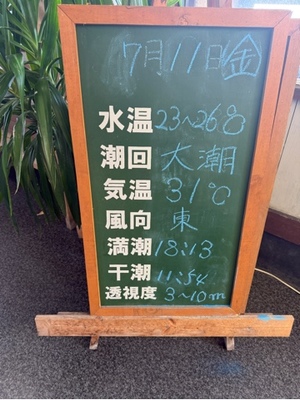 7月11日(金)
水温 23~26℃
潮回 大潮
気温 31℃
風向 東
満潮 18:13
干潮 11:54
透視度 3~10m